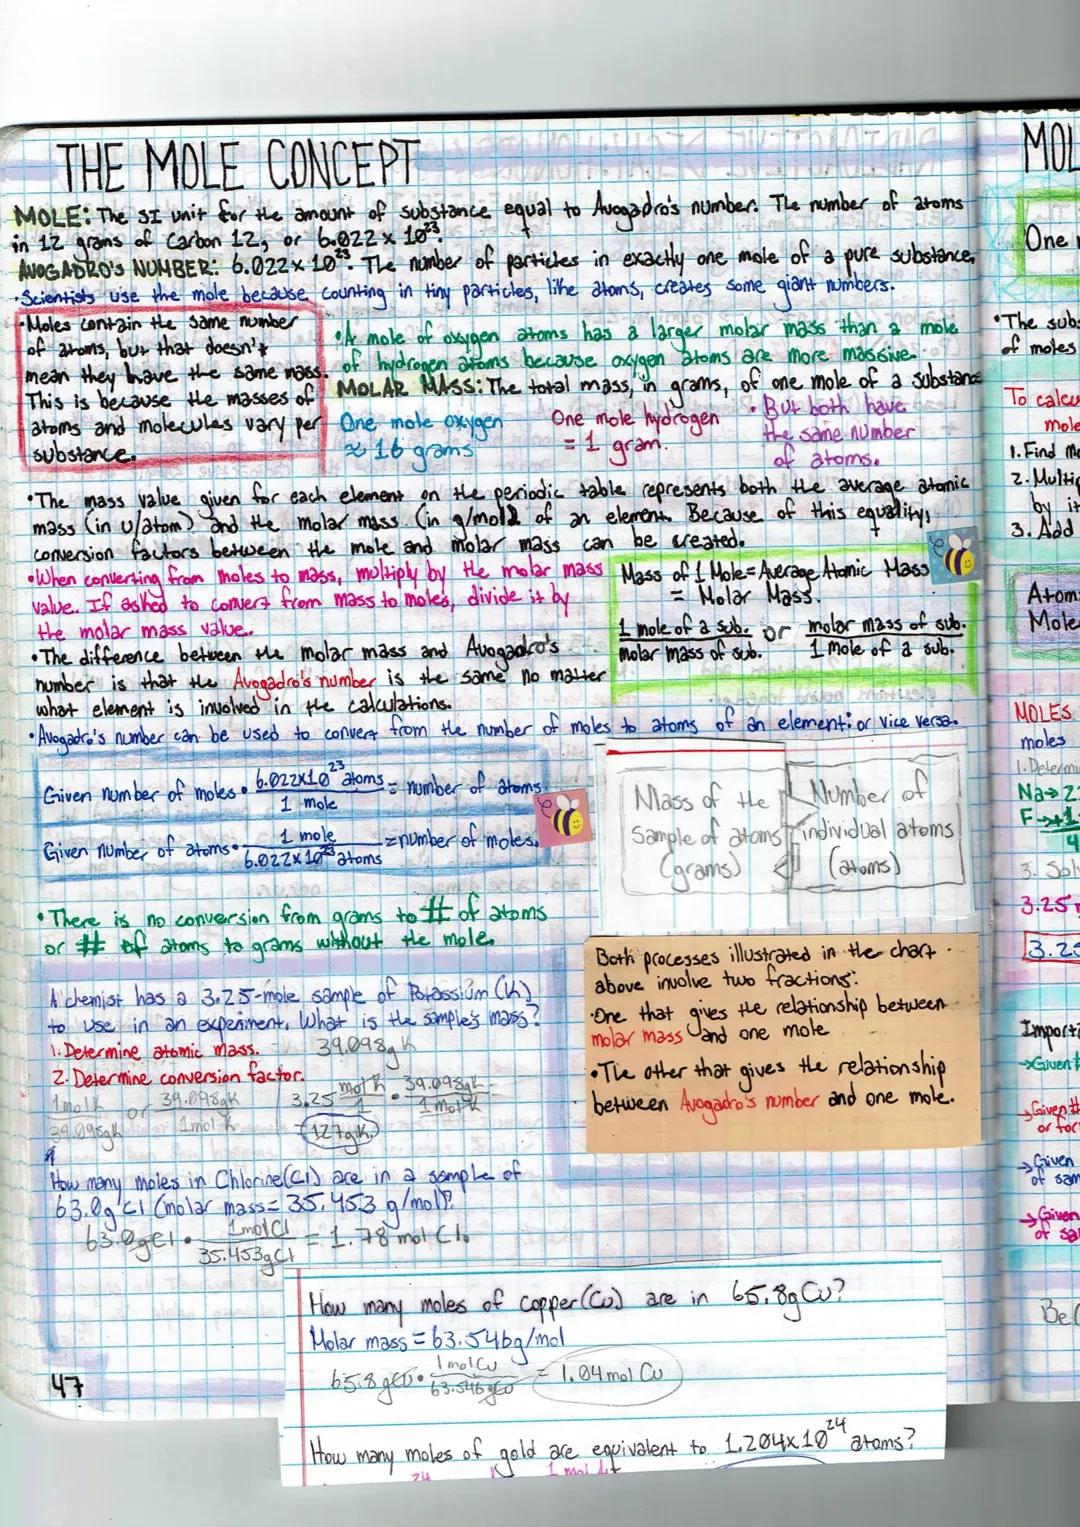 THE MOLE CONCEPT
MOLE: The SI unit for the amount of substance equal to Avogadro's number. The number of atoms
in 12 grams of Carbon 12, or 6.022 x 10²³.
AVOGADRO'S NUMBER: 6.022 x 10²³. The number of particles in exactly one mole of a pure substance.
•Scientists use the mole because counting in tiny particles, like atoms, creates some giant numbers.
•Moles contain the same number
of atoms, but that doesn't
mean they have the same mass.
This is because the masses of
atoms and molecules vary per
substance.
•A mole of oxygen atoms has a larger molar mass than a mole
of hydrogen atoms because oxygen atoms are more massive.
MOLAR MASS: The total mass, in grams, of one mole of a substance
One mole oxygen
≈ 16 grams
One mole hydrogen
= 1 gram.
• But both have
the same number
of atoms.
•The mass value given for each element on the periodic table represents both the average atomic
mass (in u/atom) and the molar mass (in g/mol) of an element. Because of this equality,
conversion factors between the mole and molar mass can be created.
•When converting from moles to mass, multiply by the molar mass
value. If asked to convert from mass to moles, divide it by
the molar mass value.
Mass of 1 Mole = Average Atomic Mass
= Molar Mass.
1 mole of a sub. or molar mass of sub.
molar mass of sub. 1 mole of a sub.
•The difference between the molar mass and Avogadro's
number is that the Avogadro's number is the same no matter
what element is involved in the calculations.
•Avogadro's number can be used to convert from the number of moles to atoms of an element; or vice versa.
Given number of moles • 6.022x10²³ atoms = number of atoms.
1 mole
Given number of atoms • 1 mole = number of moles.
6.022 x 10²³ atoms
Mass of the
sample of atoms
(grams)
Number of
individual atoms
(atoms)
•There is no conversion from grams to # of atoms
or # of atoms to grams without the mole.
Both processes illustrated in the chart
above involve two fractions:
•One that gives the relationship between
molar mass and one mole
•The other that gives the relationship
between Avogadro's number and one mole.
A chemist has a 3.25-mole sample of Potassium (K)
to use in an experiment. What is the sample's mass?
1. Determine atomic mass. 39.098g K
2. Determine conversion factor.
1 mol K or 39.098gK
39.098gK 1 mol K
3.25 mol K • 39.098gK
1 1 mol K
127g K.
How many moles in Chlorine (Cl) are in a sample of
63.0g Cl (molar mass = 35.453 g/mol)?
63.0g Cl • 1 mol Cl = 1.78 mol Cl.
35.453g Cl
How many moles of copper (Cu) are in 65.8g Cu?
Molar mass = 63.546g/mol
65.8 g Cu • 1 mol Cu = 1.04 mol Cu
63.546 g Cu
How many moles of gold are equivalent to 1.204x10²⁴ atoms?
24
47
MOL
One
•The subs
of moles
To calcu
mole
1. Find
2. Multip
by it
3. Add
Atom
Mole
MOLES
moles
1. Determi
Na→2
F→1
4
3. Sol
3.25
3.25
Import
→Given #
→Given #
or for
→Given
of sam
→Given
of sa
Be